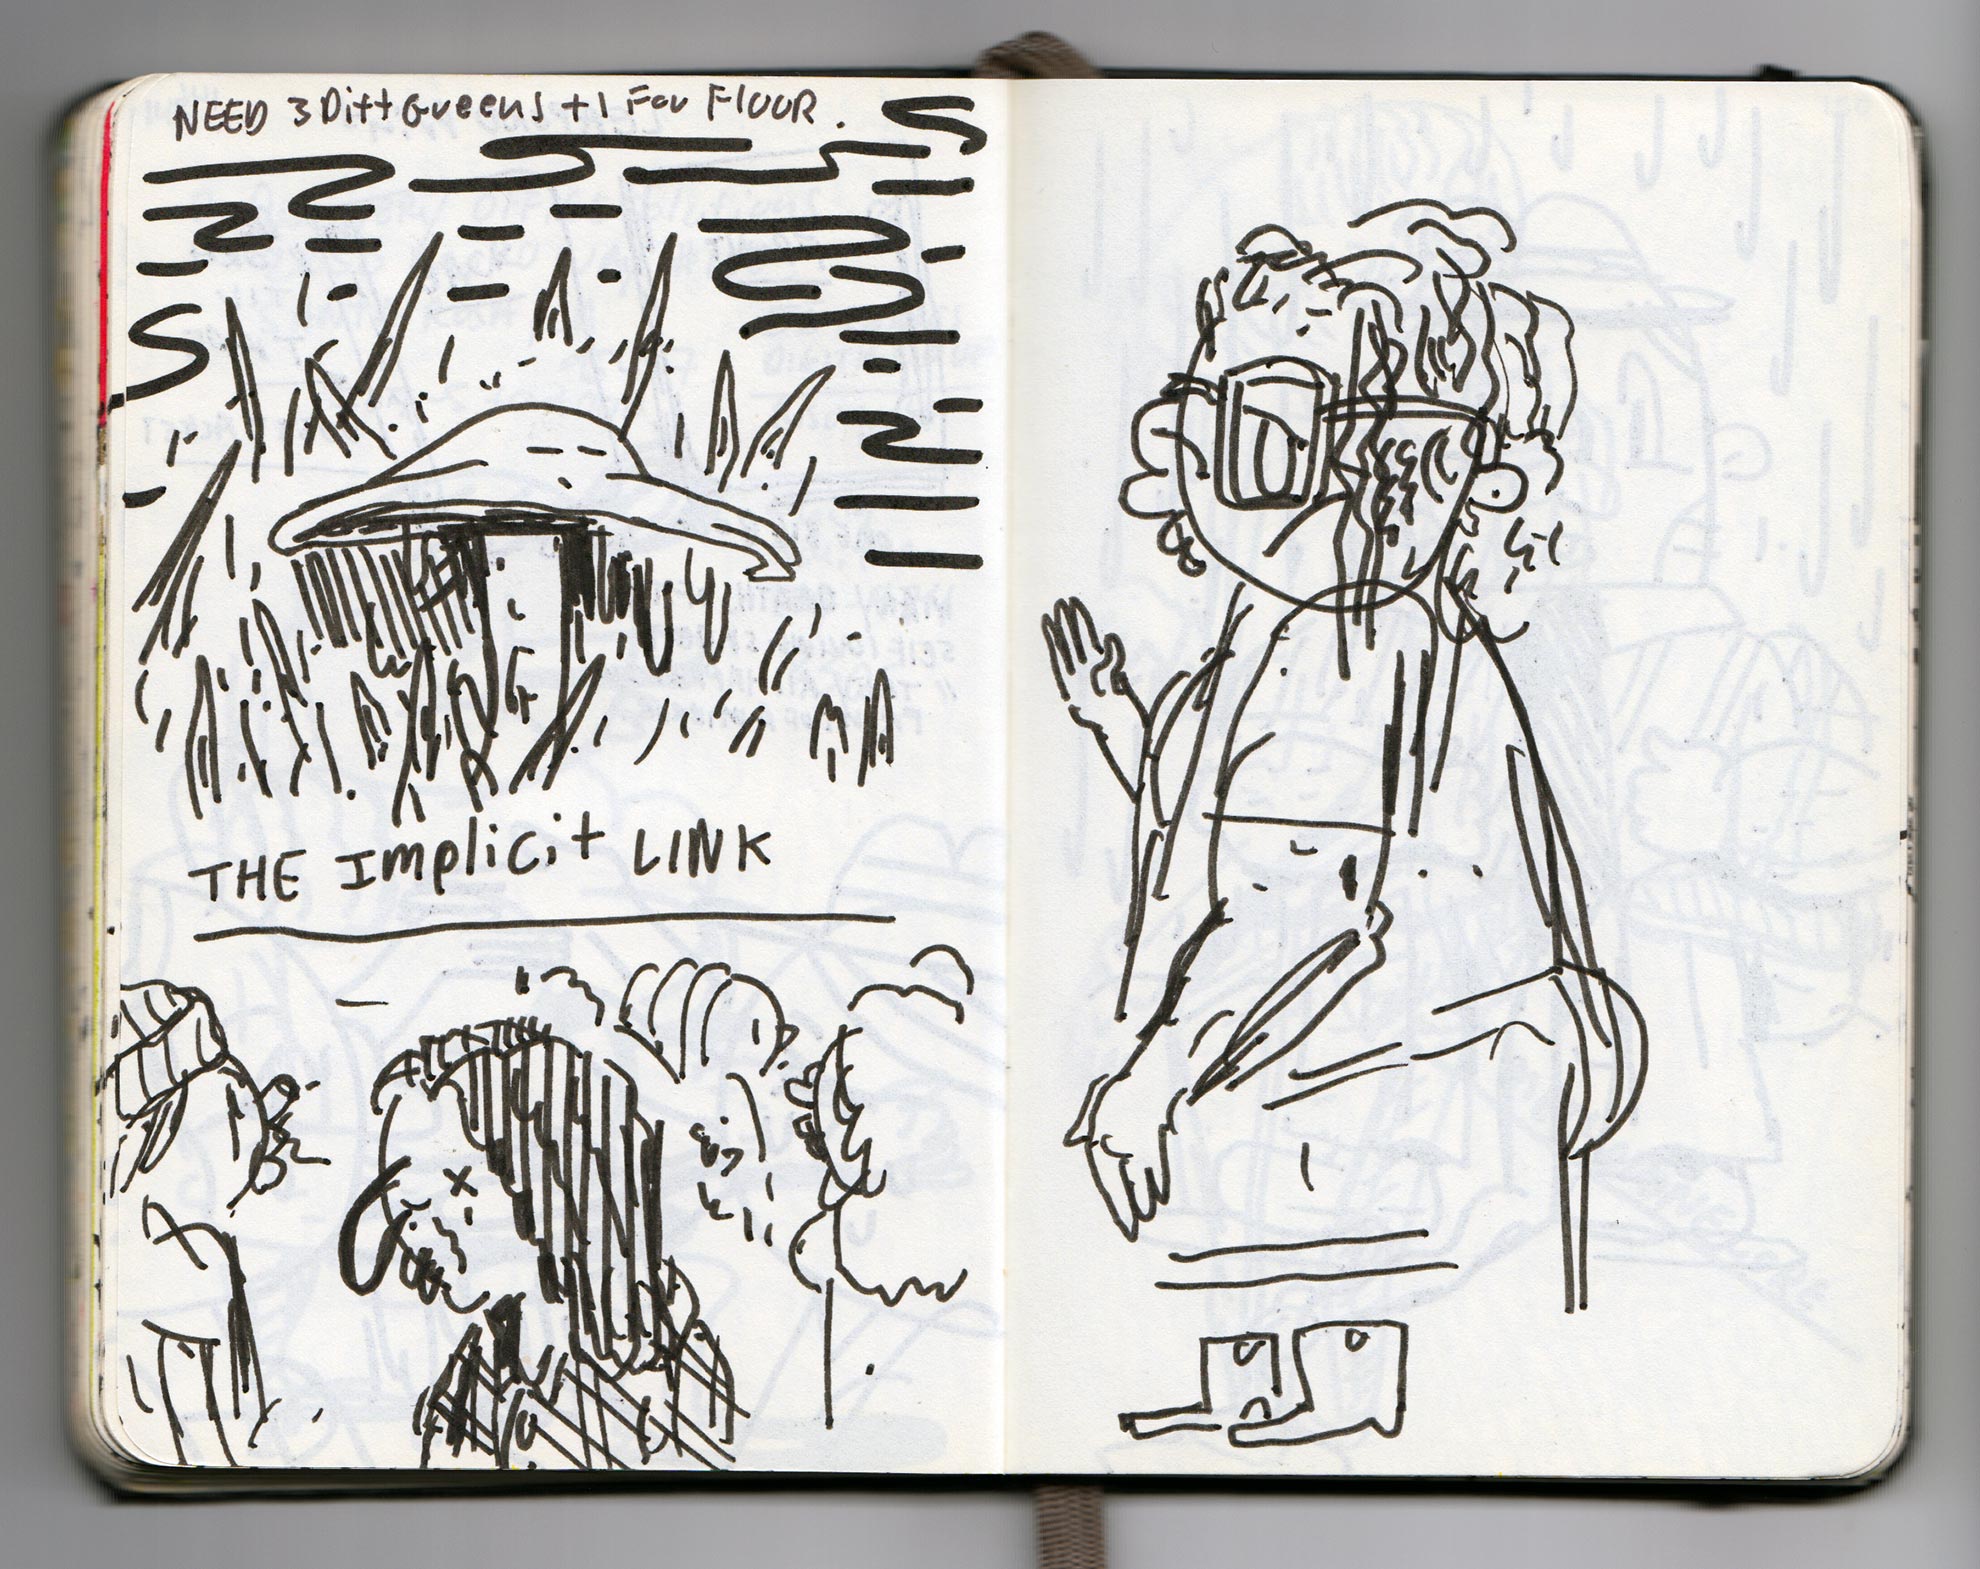 NEED 3 Diff Greens + 1 For FlOOR.
THE Implicit LINK